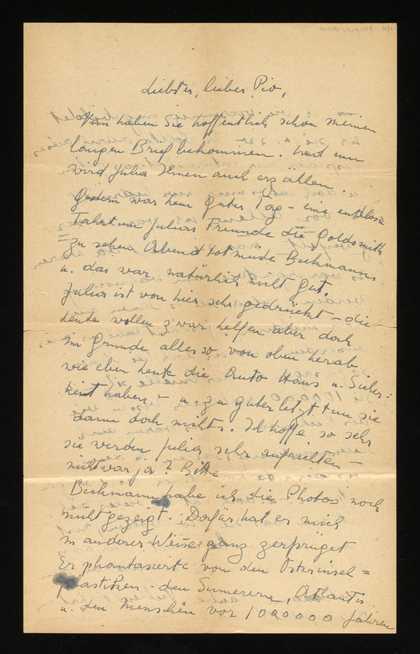 Liebster, lieber Pio,
Nun haben Sie hoffentlich schon meinen
langen Brief bekommen. Und nun
wird Julia Ihnen auch erzählen.
Gestern war kein guter Tag - eine endlose
Fahrt zu Julias Freunde die Goldsmith
zu sehen Abend todmüde Buhmanns
u. das war natürlich nicht gut.
Julia ist von hier sehr gedrückt - die
Leute wollen zwar helfen aber doch
im Grunde alles so von oben herab
wie eben heute die Auto Haus u. Sicher-
keit haben, - u. zu guter letzt tun sie
dann doch nichts. Ich hoffe so sehr
sie werden Julia sehr aufrichten -
nicht war ja? Bitte
Buhmann habe ich die Photos noch
nicht gezeigt. Dafür hat er mich
in anderer Weise ganz zerprügelt
Er phantasierte von den Osterinsel=
plastiken - den Sumerern, Atlantis
u. den Menschen vor 1000000 Jahren